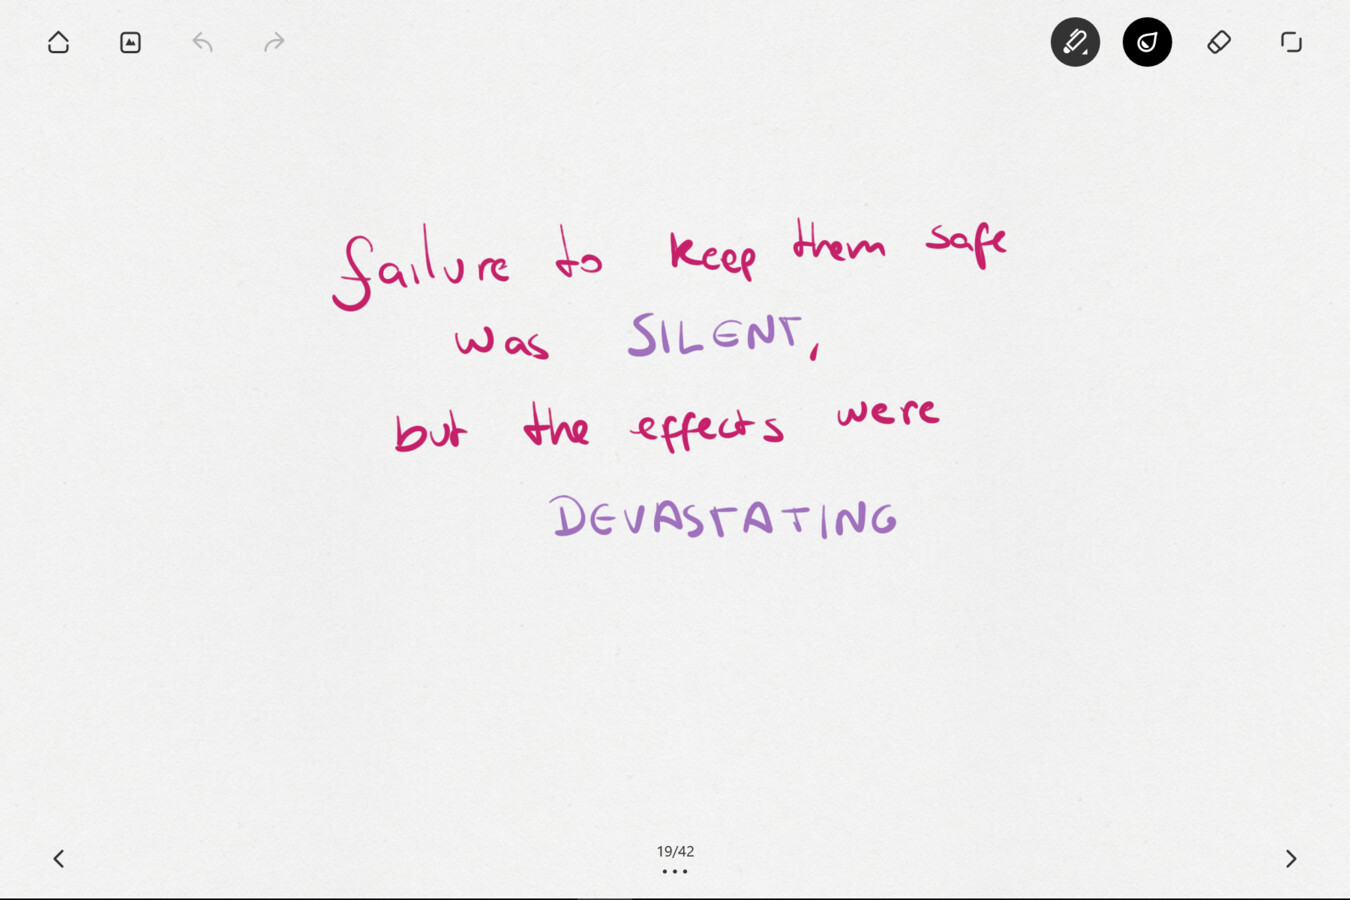 failure to keep them safe
was SILENT,
but the effects were
DEVASTATING
19/42